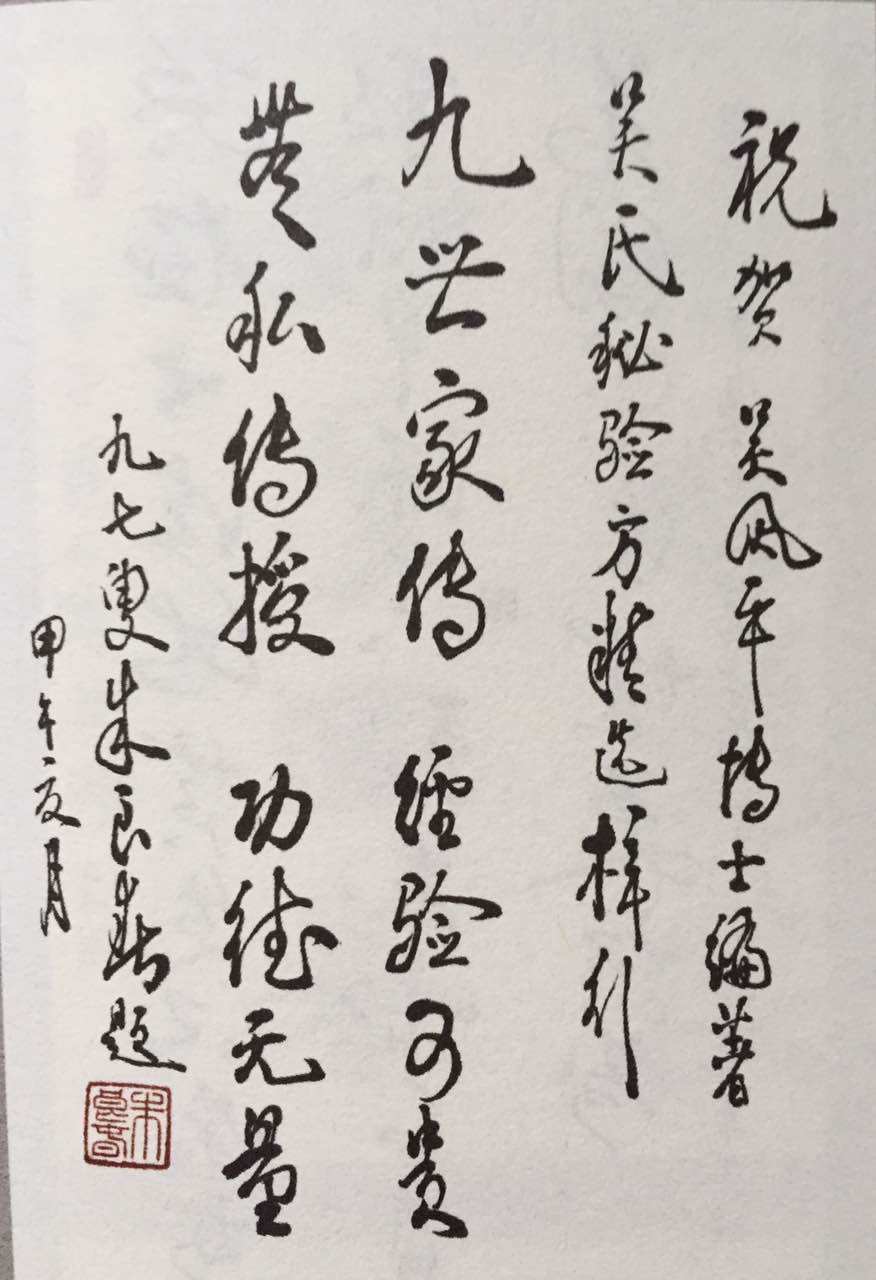 祝贺 吴风平博士编著
吴氏秘验方精选梓行
九世家传 經验可贵
無私传授 功德无量
九七叟朱良春题
甲午夏月
朱良春